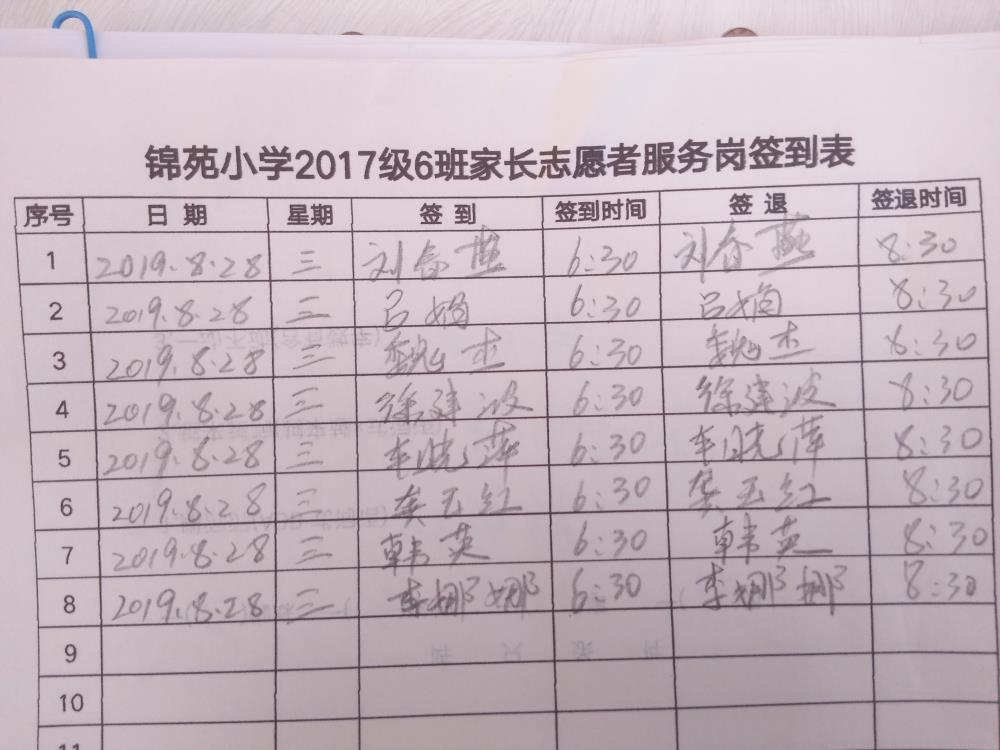 锦苑小学2017级6班家长志愿者服务岗签到表
序号 日期 星期 签到 签到时间 签退 签退时间
1 2019.8.28 三 刘春燕 6:30 刘春燕 8:30
2 2019.8.28 三 吕娟 6:30 吕娟 8:30
3 2019.8.28 三 魏杰 6:30 魏杰 8:30
4 2019.8.28 三 徐建波 6:30 徐建波 8:30
5 2019.8.28 三 车晓萍 6:30 车晓萍 8:30
6 2019.8.28 三 龚玉红 6:30 龚玉红 8:30
7 2019.8.28 三 韩英 6:30 韩英 8:30
8 2019.8.28 三 李娜娜 6:30 李娜娜 8:30
9
10
11